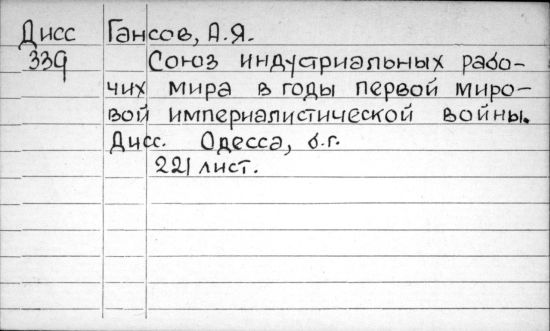 Дисс Гансов, А.Я.
339 Союз индустриальных рабо-
чих мира в годы первой миро-
вой империалистической войны.
Дисс. Одесса, б.г.
221 лист.